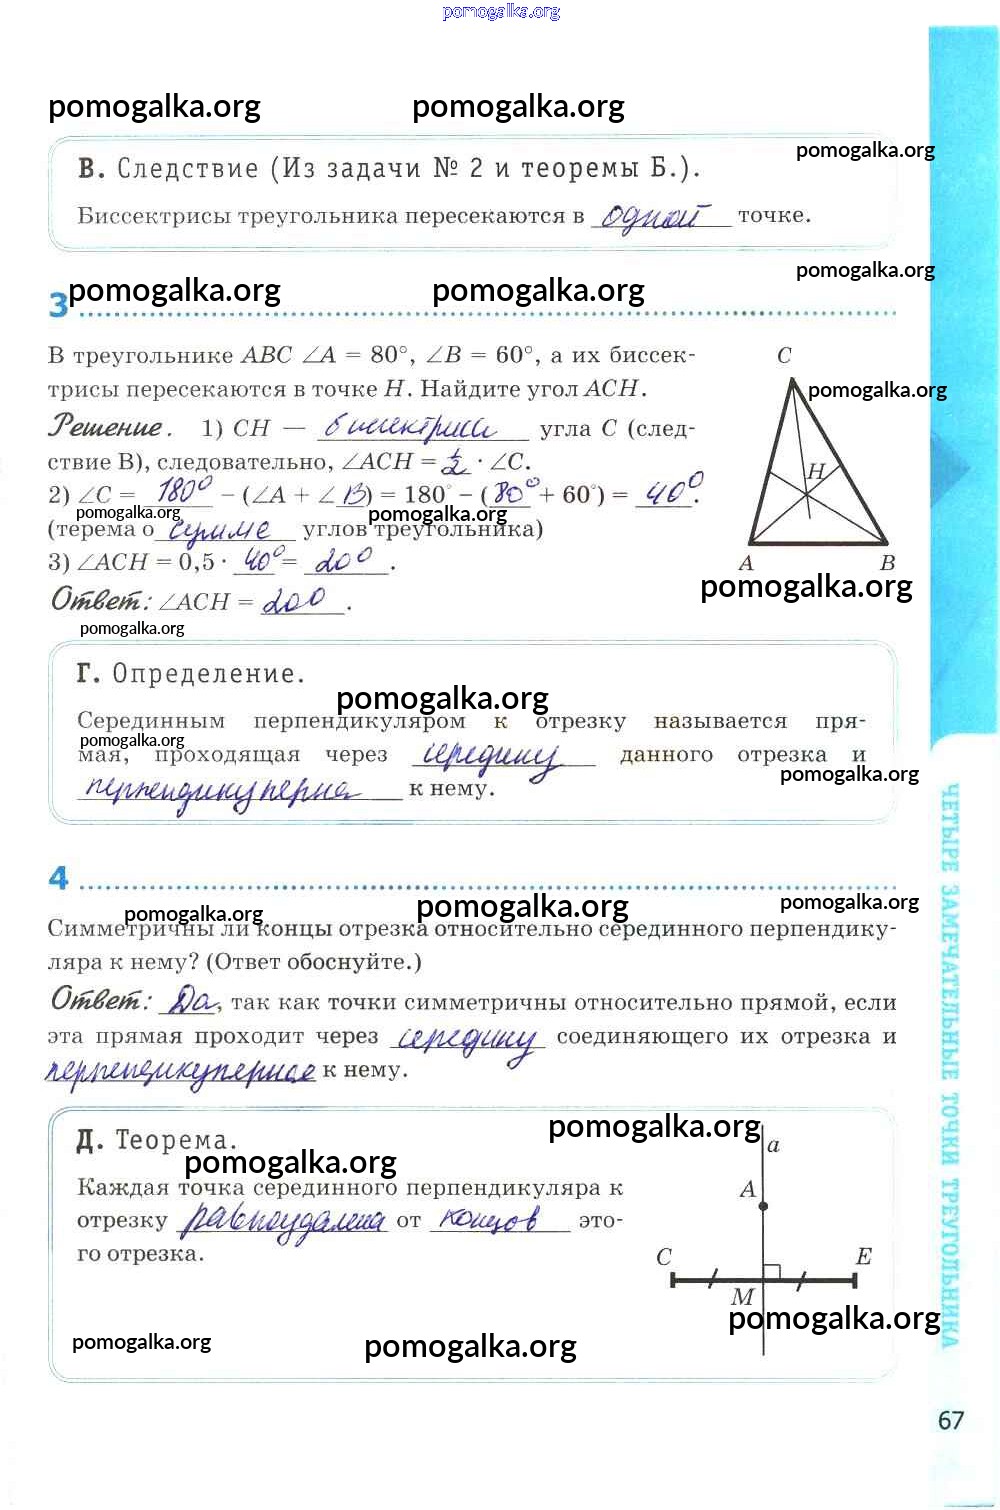 pomogalka.org
pomogalka.org pomogalka.org
В. Следствие (Из задачи № 2 и теоремы Б.).
pomogalka.org
Биссектрисы треугольника пересекаются в одной точке.
pomogalka.org
3 pomogalka.org pomogalka.org
В треугольнике ABC ∠A = 80°, ∠B = 60°, а их биссек-
трисы пересекаются в точке H. Найдите угол ACH.
Решение. 1) CH — биссектриса угла C (след-
ствие В), следовательно, ∠ACH = 1/2 · ∠C.
2) ∠C = 180° – (∠A + ∠B) = 180° – (80° + 60°) = 40°.
pomogalka.org pomogalka.org
(терема о сумме углов треугольника)
3) ∠ACH = 0,5 · 40° = 20°.
Ответ: ∠ACH = 20°.
pomogalka.org
C
pomogalka.org
H
A B
pomogalka.org
Г. Определение.
pomogalka.org
Серединным перпендикуляром к отрезку называется пря-
pomogalka.org
мая, проходящая через середину данного отрезка и
pomogalka.org
перпендикулярна к нему.
4
pomogalka.org pomogalka.org pomogalka.org
Симметричны ли концы отрезка относительно серединного перпендику-
ляра к нему? (Ответ обоснуйте.)
Ответ: Да, так как точки симметричны относительно прямой, если
эта прямая проходит через середину соединяющего их отрезка и
перпендикулярное к нему.
pomogalka.org
Д. Теорема.
pomogalka.org
Каждая точка серединного перпендикуляра к
отрезку равноудалена от концов это-
го отрезка.
a
A
C E
M
pomogalka.org
pomogalka.org pomogalka.org
ЧЕТЫРЕ ЗАМЕЧАТЕЛЬНЫЕ ТОЧКИ ТРЕУГОЛЬНИКА
67